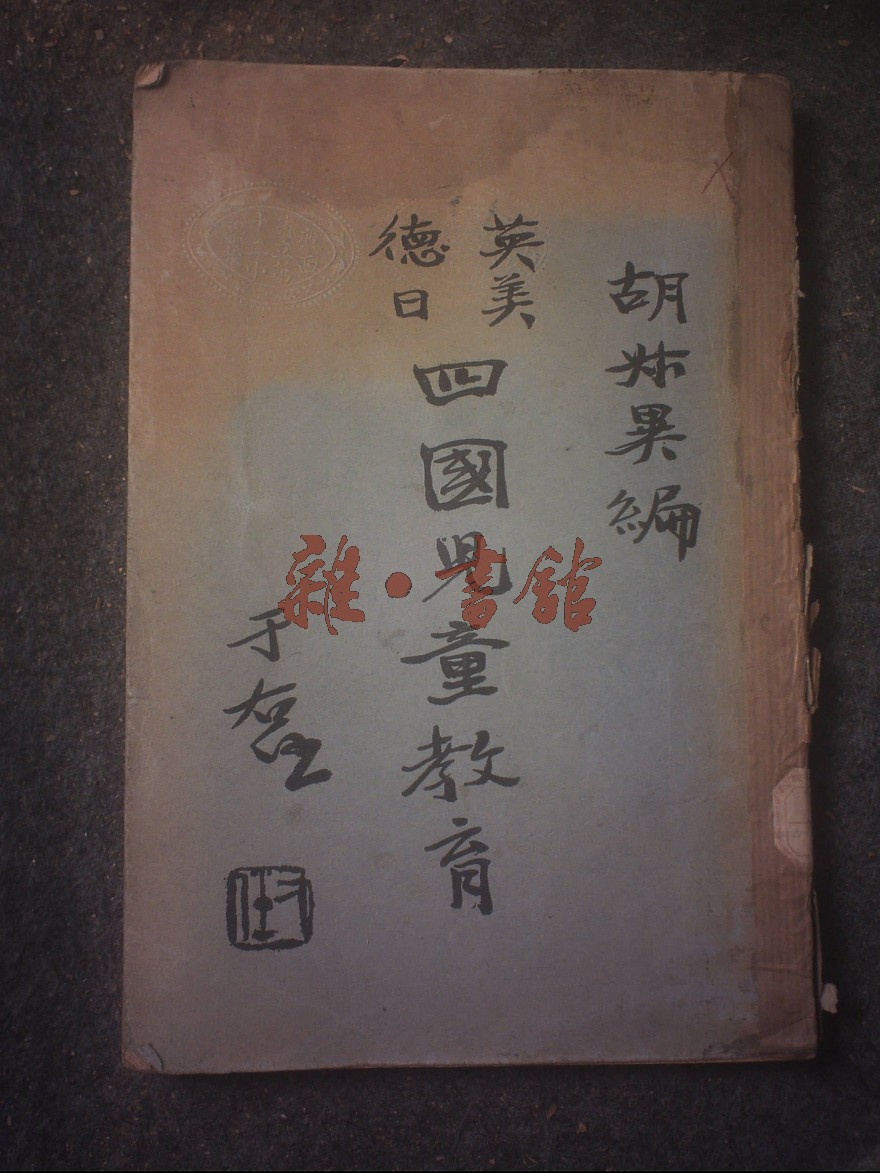 胡叔異編
英美
德日
四國兒童教育
于右任
雜·書館